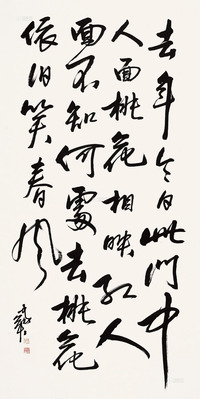 去年今日此門中
人面桃花相映紅人
面不知何處去桃花
依旧笑春风